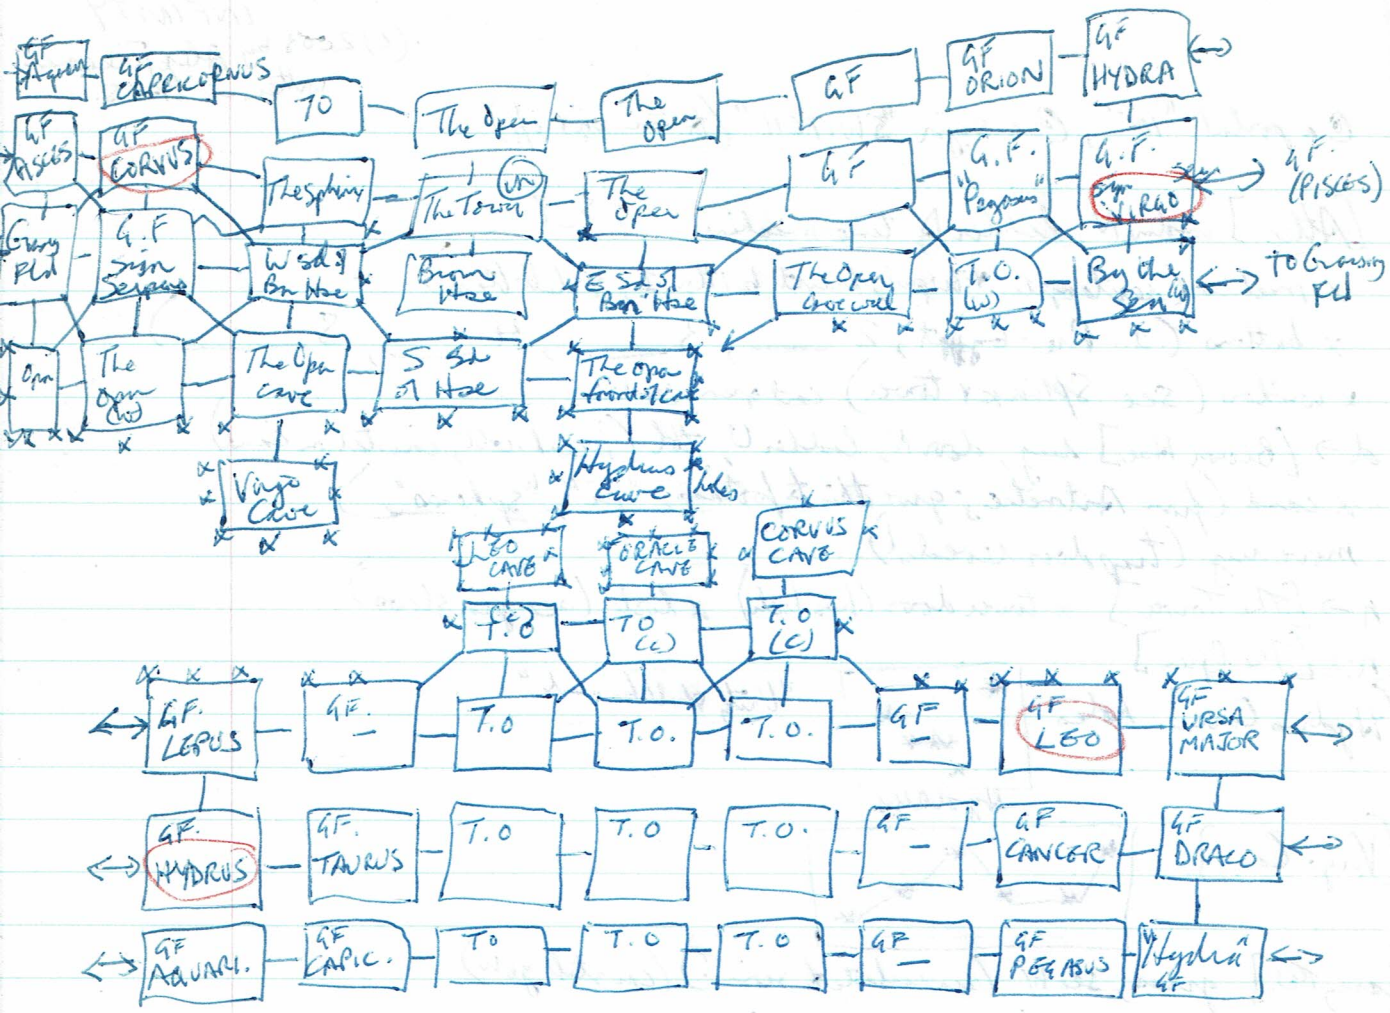 GF
Aquari
GF
CAPRICORNUS
TO
The Open
The
Open
GF
GF
ORION
GF
HYDRA
GF
PISCES
GF
CORVUS
The Sphinx
The Town
(W)
The
Open
GF
G.F.
"Pegasus"
G.F.
sign
VIRGO
G.F.
(PISCES)
Grazing
Fld
G.F
Sign
Serpens
W Sd of
Brn Hse
Brown
Hse
E Sd of
Brn Hse
The Open
cave wall
T.O.
(W)
By the
Sea (W)
to Grazing
Fld
Open
The
Open
(W)
The Open
cave
S Sd
of Hse
The Open
front of cave
Virgo
Cave
Hydrus
Cave
holes
LEO
CAVE
ORACLE
CAVE
CORVUS
CAVE
(C)
T.O
TO
(C)
T.O
(C)
GF.
LEPUS
GF.
–
T.O
T.O.
T.O.
GF
–
GF
LEO
GF
URSA
MAJOR
GF.
HYDRUS
GF.
TAURUS
T.O
T.O
T.O.
GF
–
GF
CANCER
GF
DRACO
GF
AQUARI.
GF
CAPIC.
TO
T.O
T.O
GF
–
GF
PEGASUS
"Hydra"
GF